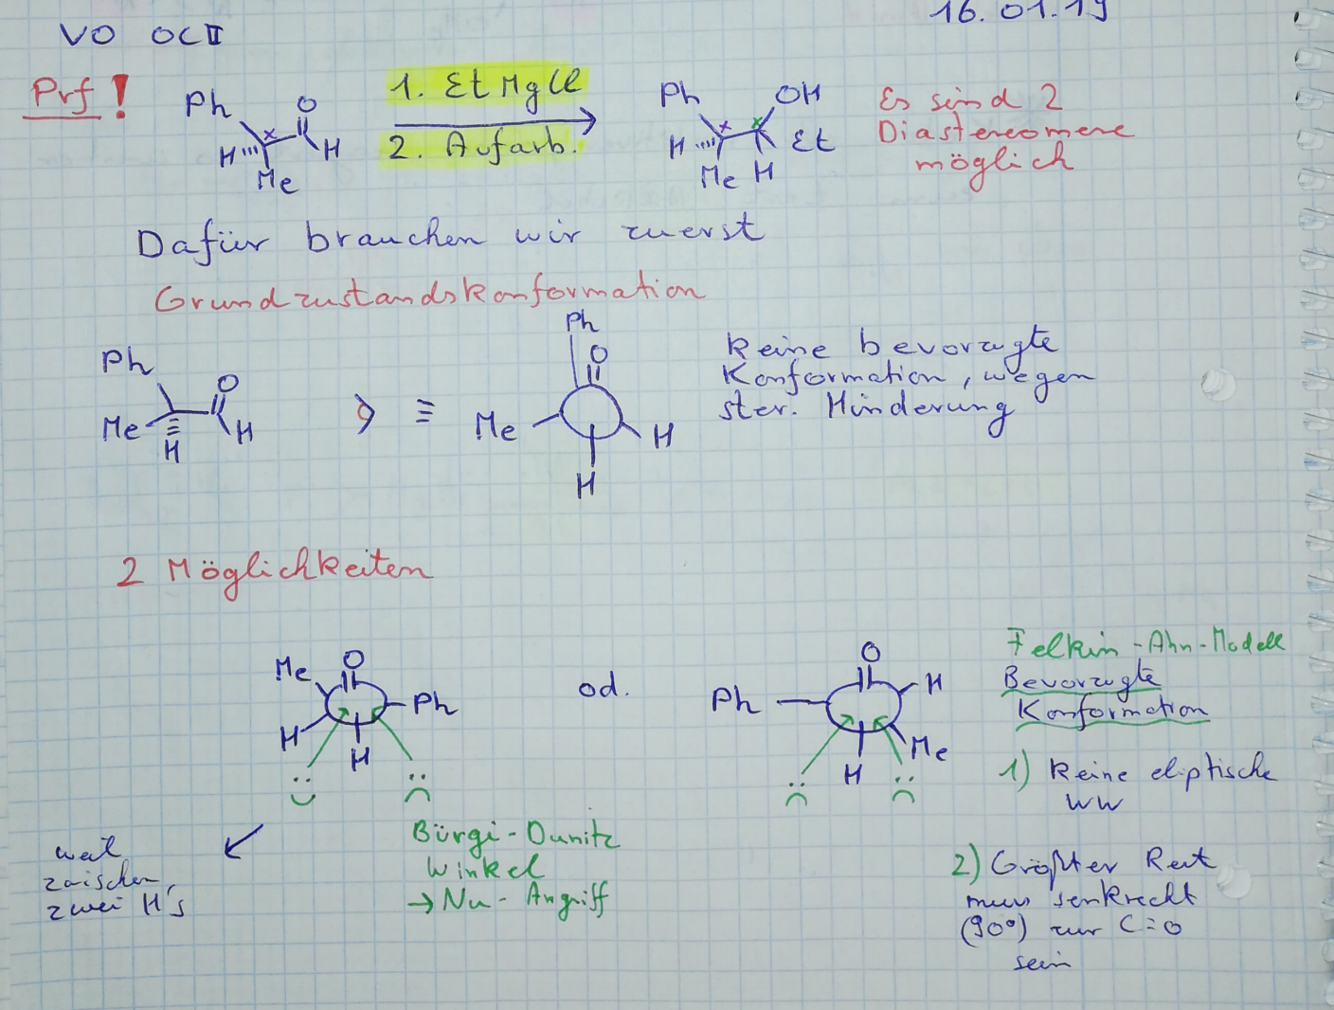 VO OC II
16.01.19
Prf!
Ph O H H Me
1. EtMgCl
2. Aufarb.
Ph OH H Et Me H
Es sind 2
Diastereomere
möglich
Dafür brauchen wir zuerst
Grundzustandskonformation
Ph O Me H H
≡
Ph O Me H H
keine bevorzugte
Konformation, wegen
ster. Hinderung
2 Möglichkeiten
Me O Ph H H
od.
O H Ph H Me
Felkin-Ahn-Modell
Bevorzugte
Konformation
1) keine eliptische
WW
2) Größter Rest
muss senkrecht
(90°) zur C=O
sein
Bürgi-Dunitz
Winkel
→ Nu-Angriff
weil
zwischen
zwei H's